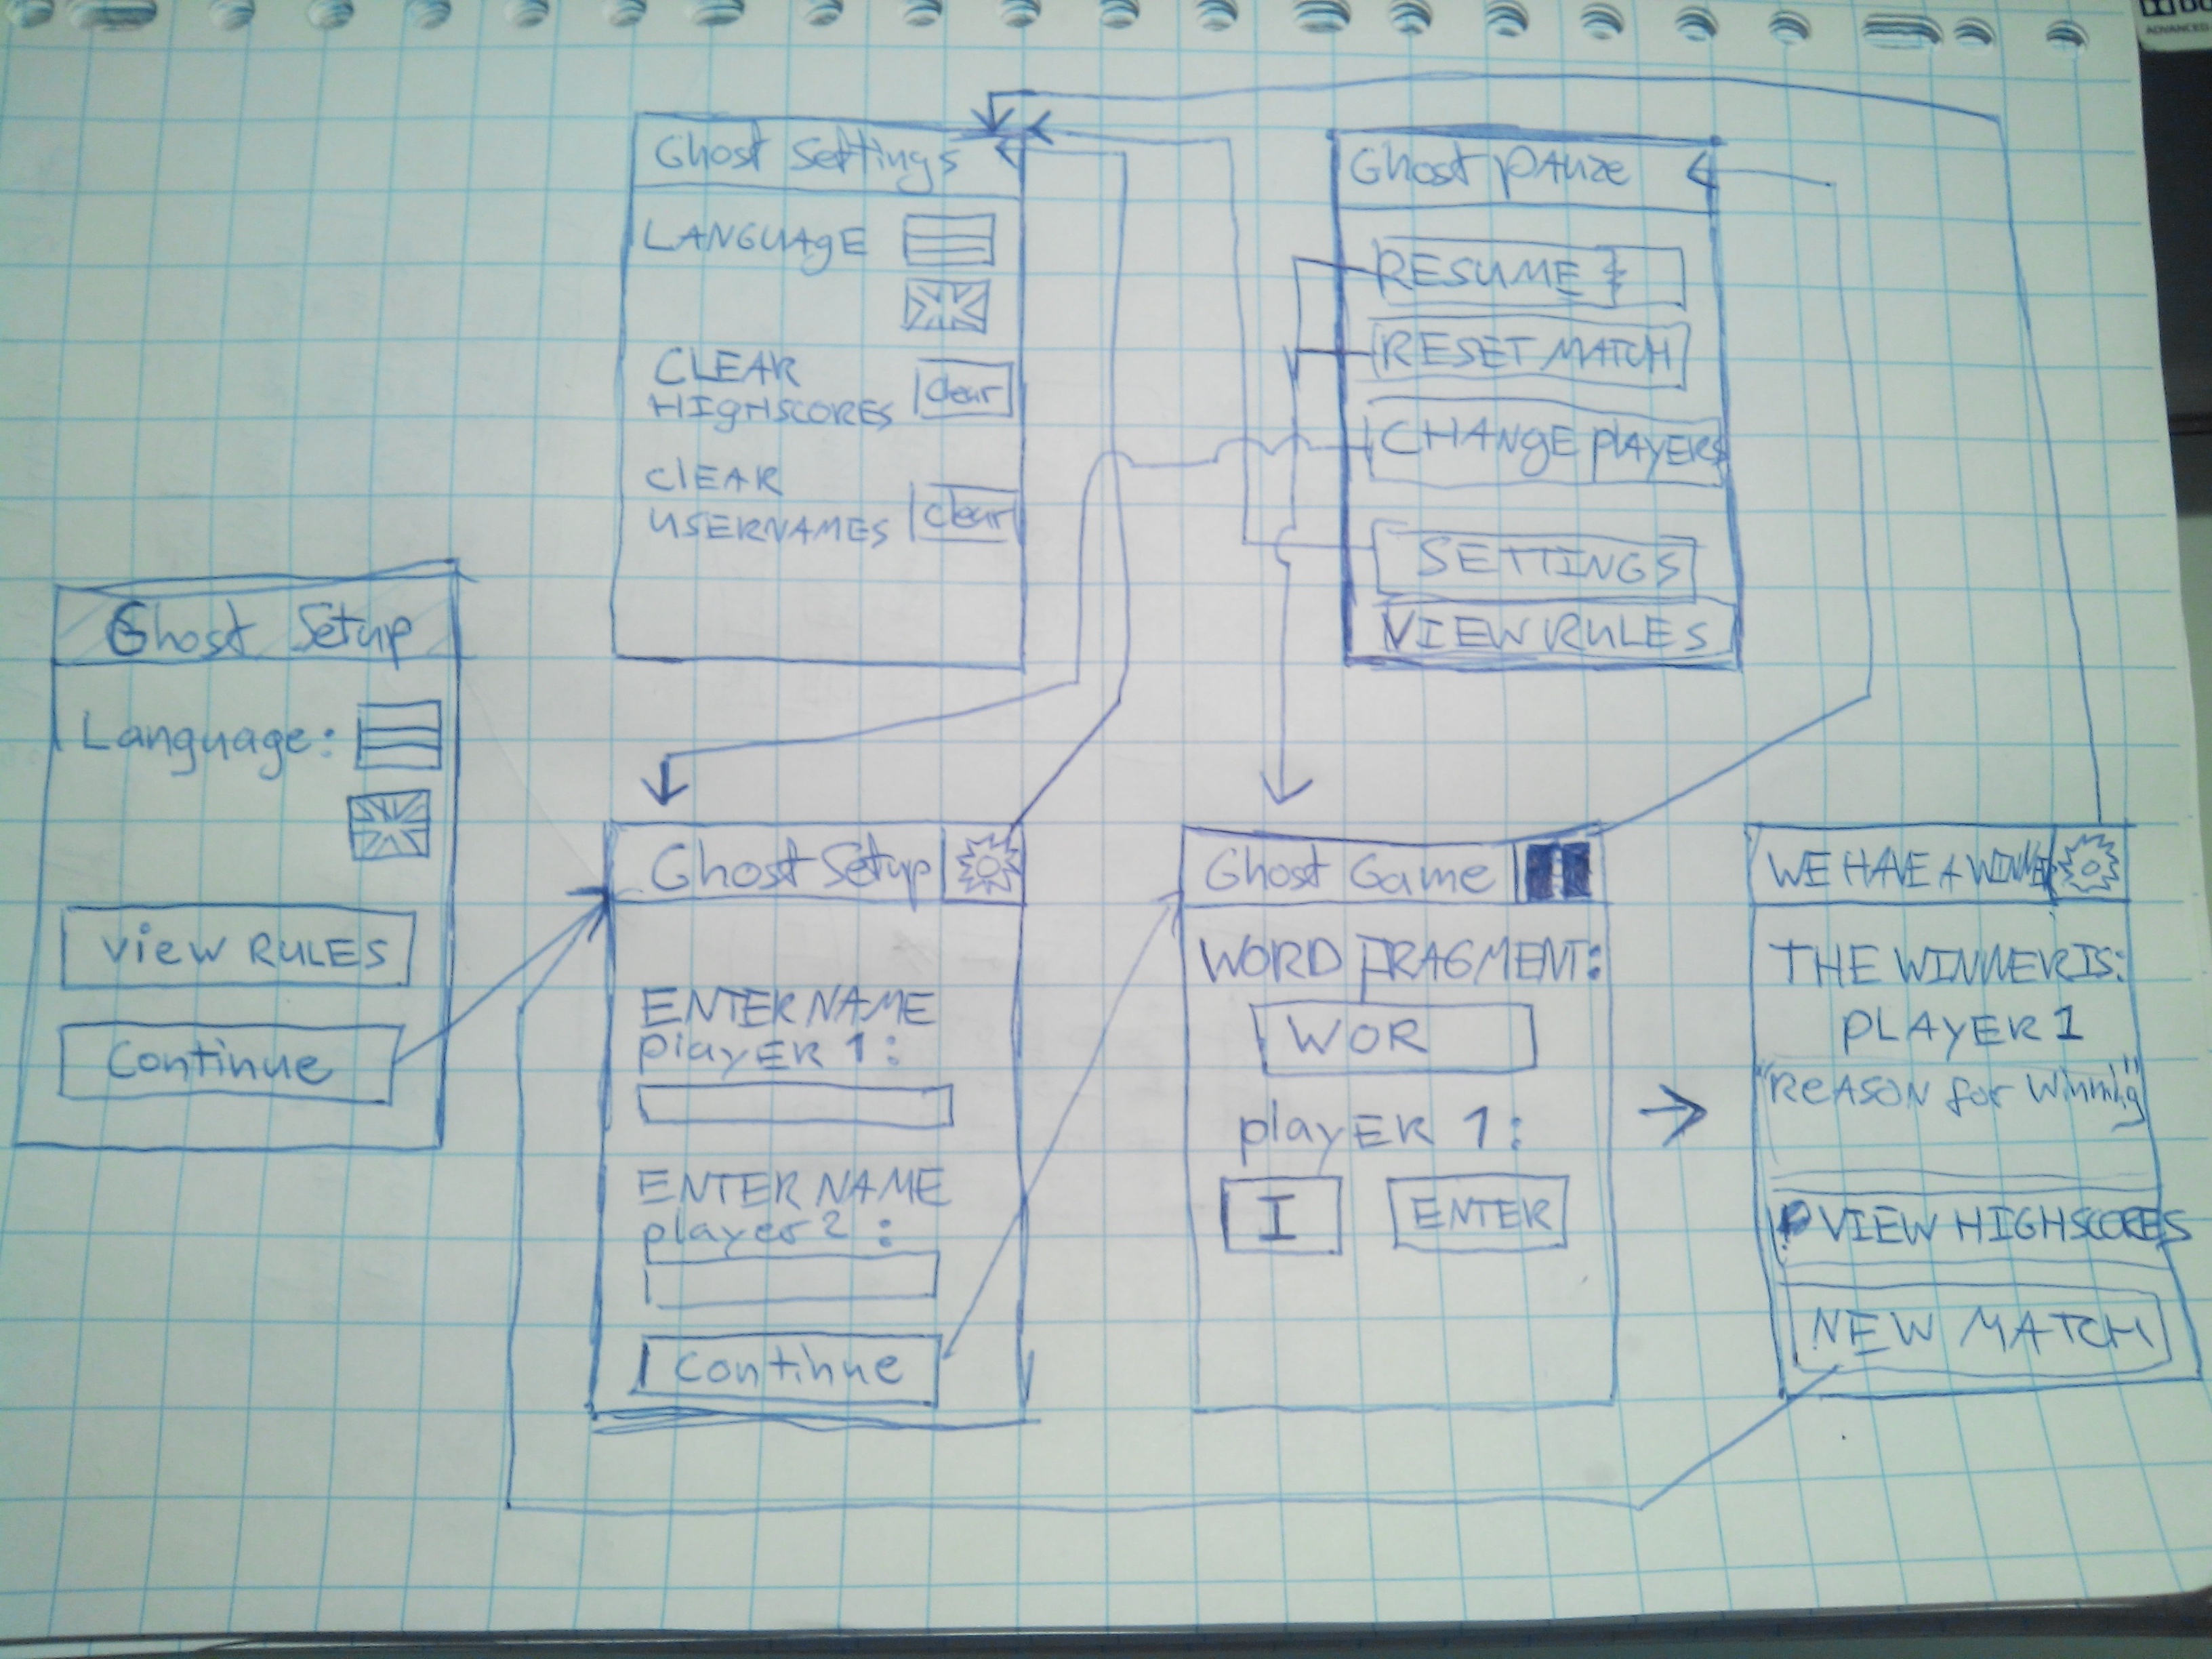 Ghost Settings
LANGUAGE
CLEAR
HIGHSCORES
Clear
CLEAR
USERNAMES
Clear
Ghost pauze
RESUME
RESET MATCH
CHANGE PLAYERS
SETTINGS
VIEW RULES
Ghost Setup
Language:
View RULES
Continue
Ghost Setup
ENTER NAME
player 1:
ENTER NAME
player 2:
Continue
Ghost Game
WORD FRAGMENT:
WOR
player 1:
I
ENTER
WE HAVE A WINNER
THE WINNER IS:
PLAYER 1
"REASON for Winning"
VIEW HIGHSCORES
NEW MATCH
ADVANCED